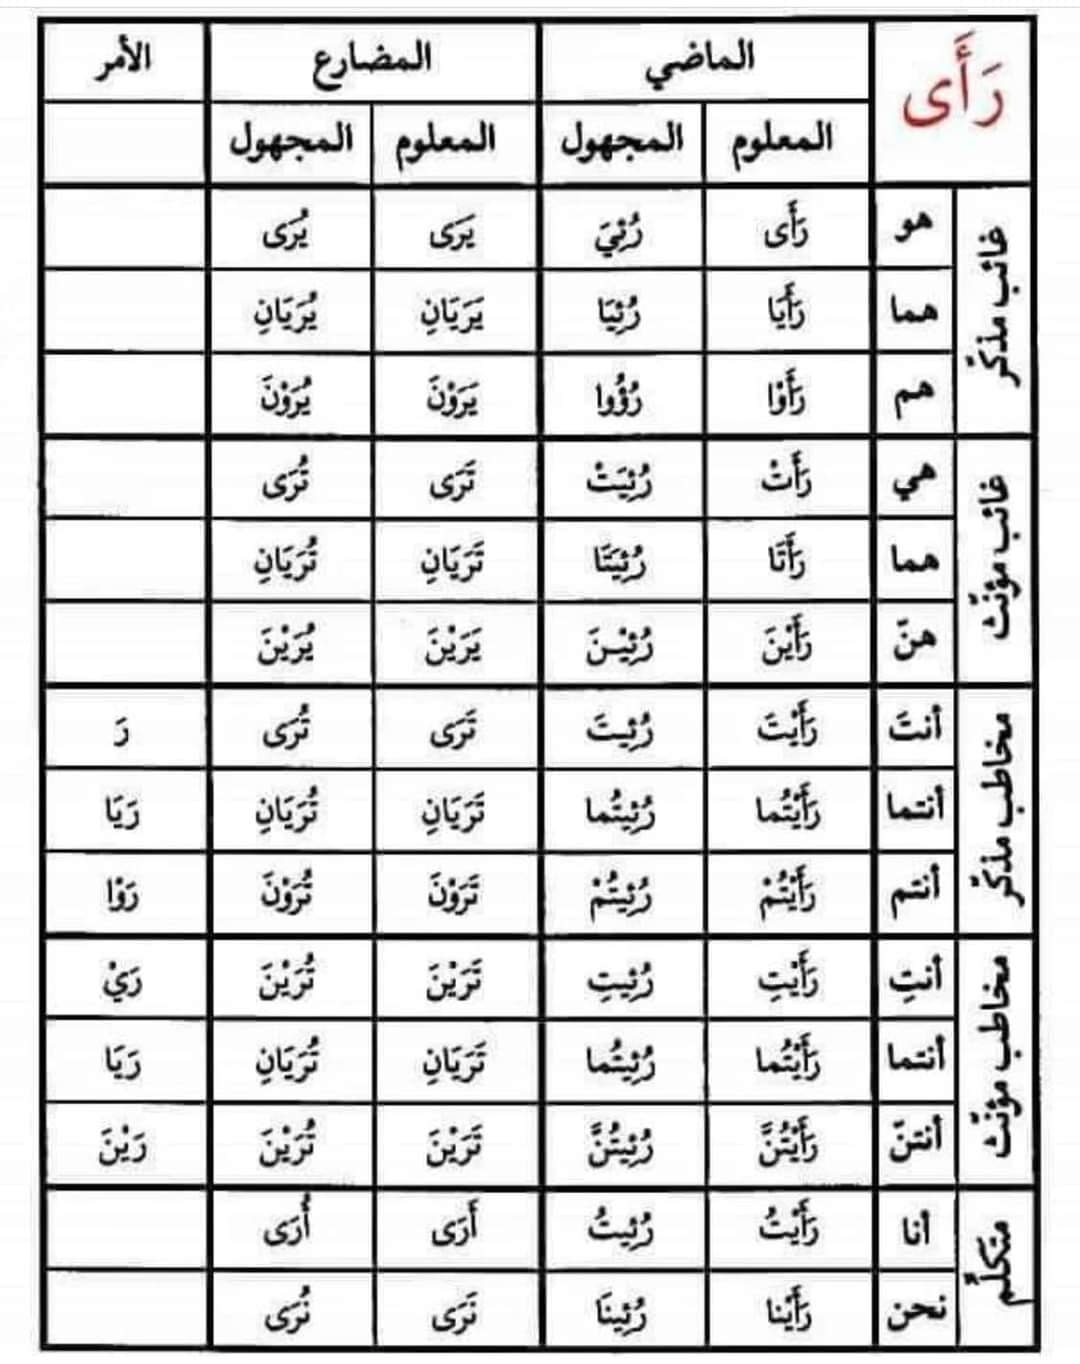 رَأَى الماضي المضارع الأمر
المعلوم المجهول المعلوم المجهول
غائب مذكّر
هو رَأَى رُئِيَ يَرَى يُرَى
هما رَأَيَا رُئِيَا يَرَيَانِ يُرَيَانِ
هم رَأَوْا رُؤُوا يَرَوْنَ يُرَوْنَ
غائب مؤنّث
هي رَأَتْ رُئِيَتْ تَرَى تُرَى
هما رَأَتَا رُئِيَتَا تَرَيَانِ تُرَيَانِ
هنّ رَأَيْنَ رُئِيْنَ يَرَيْنَ يُرَيْنَ
مخاطب مذكّر
أنتَ رَأَيْتَ رُئِيتَ تَرَى تُرَى رَ
أنتما رَأَيْتُما رُئِيتُما تَرَيَانِ تُرَيَانِ رَيَا
أنتم رَأَيْتُمْ رُئِيتُمْ تَرَوْنَ تُرَوْنَ رَوْا
مخاطب مؤنّث
أنتِ رَأَيْتِ رُئِيتِ تَرَيْنَ تُرَيْنَ رَيْ
أنتما رَأَيْتُما رُئِيتُما تَرَيَانِ تُرَيَانِ رَيَا
أنتنّ رَأَيْتُنَّ رُئِيتُنَّ تَرَيْنَ تُرَيْنَ رَيْنَ
متكلّم
أنا رَأَيْتُ رُئِيتُ أَرَى أُرَى
نحن رَأَيْنا رُئِينَا نَرَى نُرَى